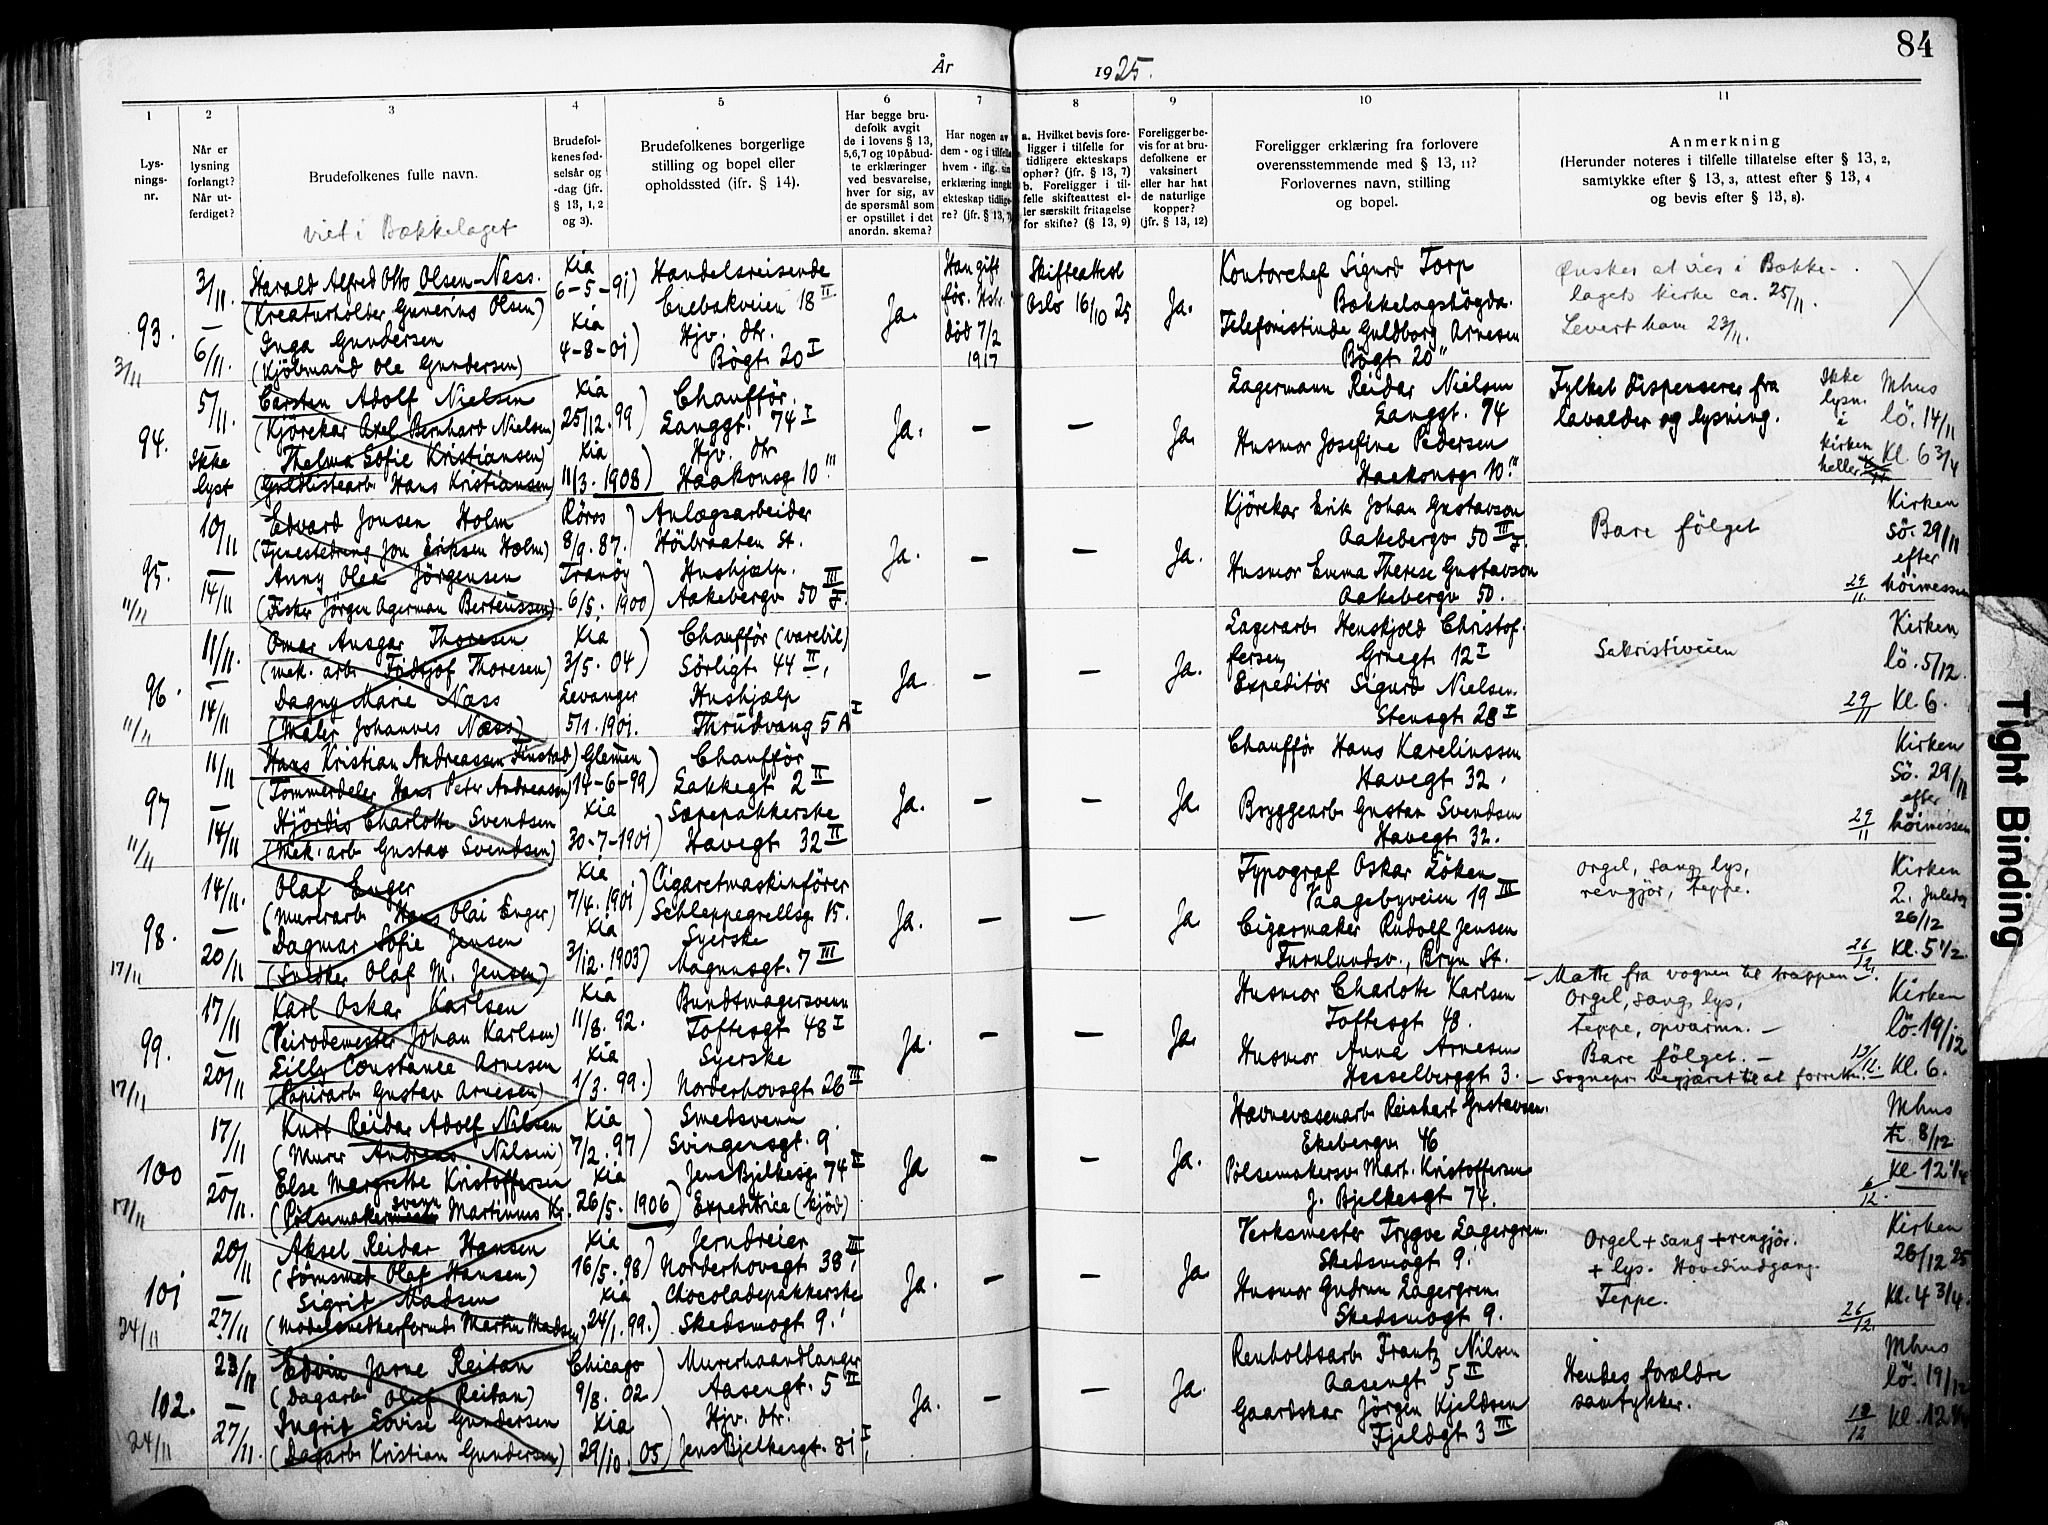 84
År 1925.
1 2 3 4 5 6 7 8 9 10 11
Lys-
nings-
nr.
Når er
lysning
forlangt?
Når ut-
ferdiget?
Brudefolkenes fulle navn.
viet i Bækkelaget
Brudefol-
kenes fød-
selsår og
-dag (jfr.
§ 13, 1, 2
og 3).
Brudefolkenes borgerlige
stilling og bopel eller
opholdssted (jfr. § 14).
Har begge bru-
defolk avgit
de i lovens § 13,
5, 6, 7 og 10 påbud-
te erklæringer
ved besvarelse,
hver for sig, av
de spørsmål som
er opstillet i det
anordn. skema?
Har nogen av
dem - og i tilfelle
hvem - iflg. sin
erklæring inngått
ekteskap tidlige-
re? (jfr. § 13, 7)
a. Hvilket bevis fore-
ligger i tilfelle for
tidligere ekteskaps
ophør? (jfr. § 13, 7)
b. Foreligger i til-
felle skifteattest el-
ler særskilt fritagelse
for skifte? (jfr. § 13, 9)
Foreligger be-
vis for at bru-
defolkene er
vaksinert
eller har hat
de naturlige
kopper?
(jfr. § 13, 12)
Foreligger erklæring fra forlovere
overensstemmende med § 13, 11?
Forlovernes navn, stilling
og bopel.
Anmerkning
(Herunder noteres i tilfelle tillatelse efter § 13, 2,
samtykke efter § 13, 3, attest efter § 13, 4
og bevis efter § 13, 8).
93.
3/11
3/11. – 6/11.
Harald Alfred Otto Olsen-Ness.
(Kreaturholder Gunerius Olsen)
Inga Gundersen
(Kjöbmand Ole Gundersen)
Kia
6-5-91)
Kia
4-8-01)
Handelsreisende
Enebakveien 18 II
Hjv. dtr.
Bögt 20 I
Ja.
Han gift
för. Hstr.
död 7/2
1917
Skifteattest
Oslo 16/10 25
Ja.
Kontorchef Sigurd Torp
Bækkelagshögda.
Telefonistinde Guldborg Arnesen
Bögt 20"
Ønsker at vies i Bække-
lagets kirke ca. 25/11.
Levert ham 23/11.
94.
5/11.
Ikke
lyst
Carsten Adolf Nielsen
(Kjörekar Axel Bernhard Nielsen)
Thelma Sofie Kristiansen)
(Guldlistearb Hans Kristiansen)
Kia
25/12. 99)
Kia
11/3. 1908)
Chaufför.
Langgt. 74 I
Hjv. dtr
Haakonsg 10 III
Ja.
–
–
Ja.
Lagermann Reidar Nielsen
Langgt. 74
Husmor Josefine Pedersen
Haakonsg 10.
Fylket dispenserer fra
lavalder og lysning.
Ikke
lysn.
i
kirken
heller
Mhus
lö. 14/11
Kl. 6 3/4
95.
11/11
10/11 – 14/11
Edvard Jonsen Holm
(Tjenestedreng Jon Eriksen Holm)
Anny Olea Jörgensen
(Fisker Jörgen Agerman Berteussen)
Röros
8/9. 87.)
Tranöy
6/5. 1900)
Anlægsarbeider
Höibraaten St.
Hushjælp.
Aakebergv 50 III
Ja.
–
–
Ja.
Kjörekar Erik Johan Gustavson
Aakebergv 50 III
Husmor Emma Therese Gustavson
Aakebergv 50.
Bare fölget
29/11
Kirken
Sö. 29/11
efter
höimessen
96.
11/11
11/11. – 14/11
Omar Ansgar Thoresen
(mek. arb Fridtjof Thoresen)
Dagny Marie Næss
(Maler Johannes Næss)
Kia
3/5. 04)
Levanger
5/1. 1901.
Chaufför (varebil)
Sörligt 44 II,
Hushjælp
Thrudvang 5 A I
Ja
–
–
Ja.
Lagerarb Henskjold Christof-
fersen, Grüegt 12 I
Expeditör Sigurd Nielsen.
Stensgt 28 I
Sakristiveien
29/11
Kirken
lö. 5/12.
Kl. 6.
97
11/11
11/11 – 14/11
Hans Kristian Andreassen Finstad)
(Tømmerdeler Hans Peter Andreasen)
Hjördis Charlotte Svendsen
(Mek. arb Gustav Svendsen)
Glemen
14-6-99)
Kia
30-7-1901)
Chaufför
Lakkegt 2 II
Sæpepakkerske
Havegt 32 II
Ja.
–
–
Ja.
Chaufför Hans Karelinssen
Havegt 32.
Bryggearb Gustav Svendsen
Havegt 32.
29/11
Kirken
Sö. 29/11
efter
höimessen
98.
17/11
14/11. – 20/11
Olaf Enger
(Murerarb Hans Olai Enger)
Dagmar Sofie Jensen
(Snedker Olaf M. Jensen)
Kia
7/4. 1901)
Kia
3/12. 1903)
Cigaretmaskinförer
Schleppegrellsg 15.
Syerske
Magnusgt. 7 III
Ja.
–
–
Ja
Typograf Oskar Löken
Vaagebyveien 19 III
Cigarmaker Rudolf Jensen
Furulundsv., Bryn St.
orgel, sang, lys,
rengjör, teppe.
26/12
Kirken
2. Juledag
26/12
Kl. 5 1/2
99.
17/11
17/11 – 20/11
Karl Oskar Karlsen
(Veirodemester Johan Karlsen)
Lilly Constance Arnesen
(Papirarb Gustav Arnesen)
Kia
11/8. 92.
Kia
1/3. 99.)
Bundtmagersvenn
Toftesgt 48 I
Syerske
Norderhovsgt 26 III
Ja.
–
–
Ja.
Husmor Charlotte Karlsen
Toftesgt 48.
Husmor Anna Arnesen
Hesselberggt 3.
– Matte fra vognen til trappen –
Orgel, sang, lys,
teppe, opvarmn. –
Bare fölget. –
– Sognepr. begjæret til at forrette.
13/12.
Kirken
lö. 19/12
Kl. 6.
100
17/11
17/11 – 20/11.
Kurt Reidar Adolf Nilsen
(Murer Andreas Nilsen)
Else Margrethe Kristoffersen
(Pölsemakersvenn Martinius Kr.
Kia
7/2. 97)
Kia
26/5. 1906)
Smedsvenn
Svingensgt. 9
Jens Bjelkesg 74 II
Expeditrice (kjöd)
Ja
–
–
Ja.
Havnevæsenarb Reinhart Gustavsen.
Ekebergv 46
Pölsemakersv Mart. Kristoffersen
J. Bjelkesgt 74.
6/12.
Mhus
ti 8/12
Kl. 12 1/4
101
24/11
20/11 – 27/11
Aksel Reidar Hansen
(Sömsmed Olaf Hansen)
Sigrid Madsen
(Modelsnedkerformd Martin Madsen)
Kia
16/5. 98)
Kia
24/1. 99.)
Jerndreier
Norderhovsgt 38 III,
Chocoladepakkerske
Skedsmogt 9.
Ja.
–
–
Ja
Verksmester Trygve Lagergren.
Skedsmogt 9.
Husmor Gudrun Lagergren
Skedsmogt 9.
Orgel + sang + rengjör.
+ lys. Hovedindgang.
Teppe.
26/12
Kirken
26/12 25
Kl. 4 3/4.
102.
24/11
23/11 – 27/11.
Edvin Jarne Reitan
(Dagarb Oluf Reitan)
Ingrid Lovise Gundersen
(Dagarb Kristian Gundersen)
Chicago
9/8. 02)
Kia
29/10. 05)
Murerhaandlanger
Aasengt. 5 II
Hjv. dtr.
Jens Bjelkesgt. 81 I,
Ja.
–
–
Ja.
Renholdsarb Frantz Nilsen
Aasengt 5 II
Gaardskar Jörgen Kjeldsen
Fjeldgt 3 III
Hendes forældre
samtykker.
19/12
Mhus
lö. 19/12
Kl. 12
Tight Binding